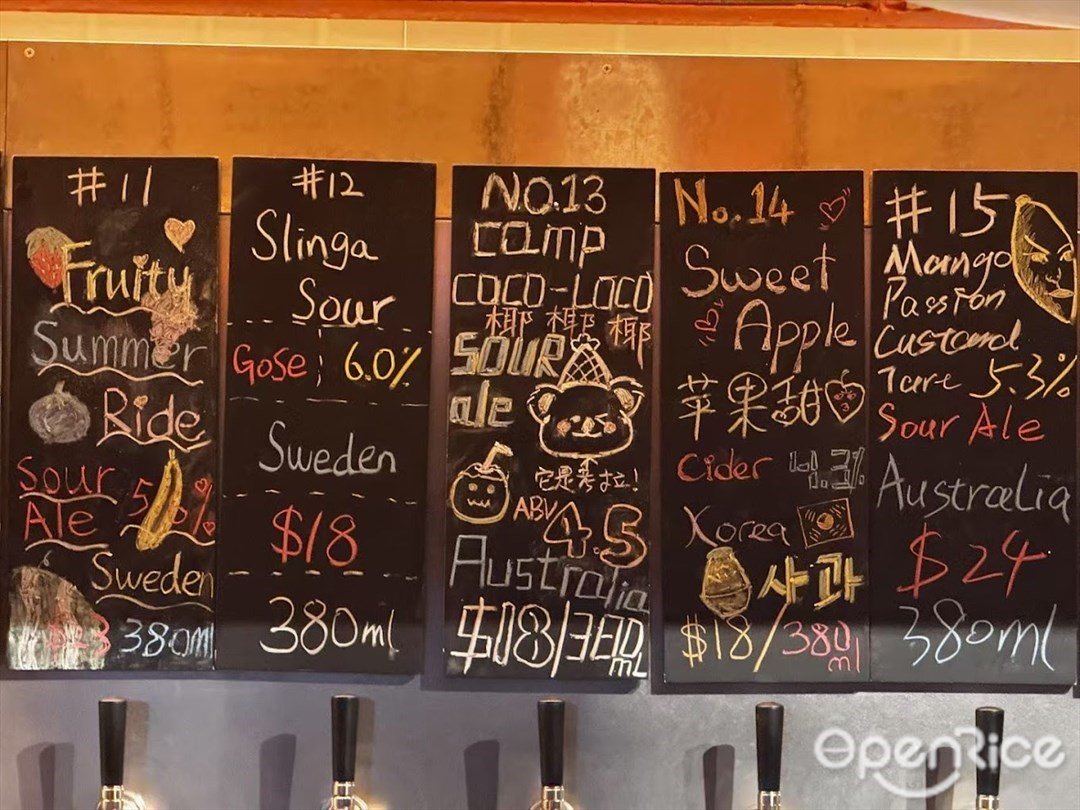 #11
Fruity
Summer
Ride
Sour
Ale
Sweden
$23 380ml
#12
Slinga
Sour
Gose 6.0%
Sweden
$18
380ml
NO.13
camp
COCO-LOCO
椰 椰 椰
SOUR
ale
它是考拉!
ABV 4.5
Australia
$18/380mL
No.14
Sweet
Apple
苹果甜
Cider 4.3%
Korea
사과
$18/380ml
#15
Mango
Passion
Custard
Tare 5.3%
Sour Ale
Australia
$24
380ml
OpenRice